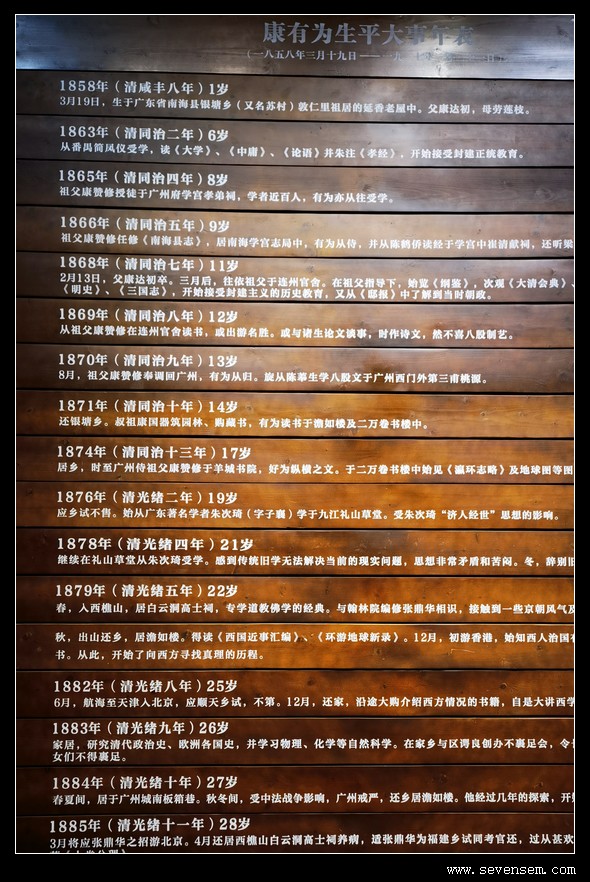 康有为生平大事年表
（一八五八年三月十九日——一九二
1858年（清咸丰八年）1岁
3月19日，生于广东省南海县银塘乡（又名苏村）敦仁里祖居的延香老屋中。父康达初，母劳莲枝。
1863年（清同治二年）6岁
从番禺简凤仪受学，读《大学》、《中庸》、《论语》并朱注《孝经》，开始接受封建正统教育。
1865年（清同治四年）8岁
祖父康赞修授徒于广州府学宫孝弟祠，学者近百人，有为亦从往受学。
1866年（清同治五年）9岁
祖父康赞修任修《南海县志》，居南海学宫志局中，有为从侍，并从陈鹤侨读经于学宫中崔清献祠，还听梁
1868年（清同治七年）11岁
2月13日，父康达初卒。三月后，往依祖父于连州官舍。在祖父指导下，始览《纲鉴》，次观《大清会典》、
《明史》、《三国志》，开始接受封建主义的历史教育，又从《邸报》中了解到当时朝政。
1869年（清同治八年）12岁
从祖父康赞修在连州官舍读书，或出游名胜。或与诸生论文谈事，时作诗文，然不喜八股制艺。
1870年（清同治九年）13岁
8月，祖父康赞修奉调回广州，有为从归。旋从陈莘生学八股文于广州西门外第三甫桃源。
1871年（清同治十年）14岁
还银塘乡。叔祖康国器筑园林、购藏书，有为读书于澹如楼及二万卷书楼中。
1874年（清同治十三年）17岁
居乡，时至广州侍祖父康赞修于羊城书院，好为纵横之文。于二万卷书楼中始见《瀛环志略》及地球图等图
1876年（清光绪二年）19岁
应乡试不售。始从广东著名学者朱次琦（字子襄）学于九江礼山草堂。受朱次琦“济人经世”思想的影响。
1878年（清光绪四年）21岁
继续在礼山草堂从朱次琦受学。感到传统旧学无法解决当前的现实问题，思想非常矛盾和苦闷。冬，辞别旧
1879年（清光绪五年）22岁
春，入西樵山，居白云洞高士祠，专学道教佛学的经典。与翰林院编修张鼎华相识，接触到一些京朝风气及
秋，出山还乡，居澹如楼。得读《西国近事汇编》、《环游地球新录》。12月，初游香港，始知西人治国有
书。从此，开始了向西方寻找真理的历程。
1882年（清光绪八年）25岁
6月，航海至天津入北京，应顺天乡试，不第。12月，还家，沿途大购介绍西方情况的书籍，自是大讲西学
1883年（清光绪九年）26岁
家居，研究清代政治史、欧洲各国史，并学习物理、化学等自然科学。在家乡与区谔良创办不裹足会，令
女们不得裹足。
1884年（清光绪十年）27岁
春夏间，居于广州城南板箱巷。秋冬间，受中法战争影响，广州戒严，还乡居澹如楼。他经过几年的探索，开
1885年（清光绪十一年）28岁
3月将应张鼎华之招游北京。4月还居西樵山白云洞高士祠养病，适张鼎华为福建乡试同考官还，过从甚欢
www.sevensem.com